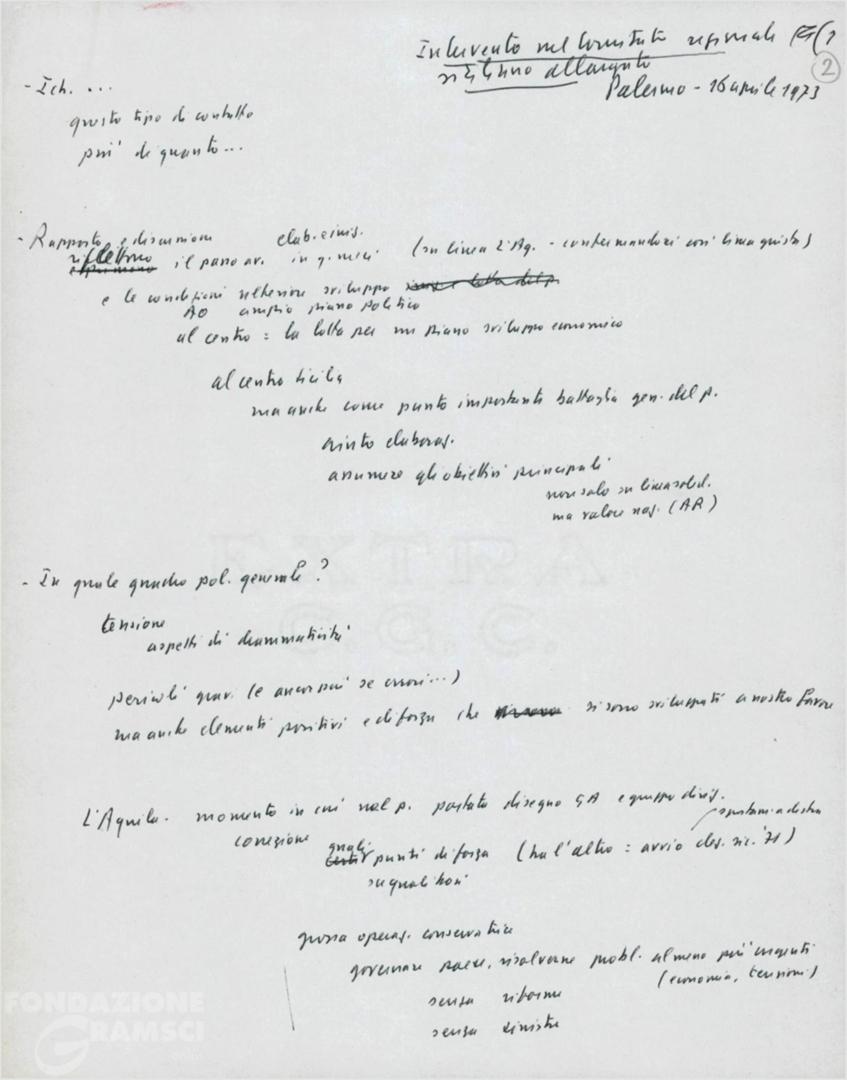 Intervento nel Comitato regionale
siciliano allargato
2
Palermo - 16 aprile 1973
- Sch. ...
questo tipo di contatto
più di quanto...
- Rapporto e discussione elab. e inis.
riflettono il passo av. in q. mesi (su linea L'Aq. - confermandosi così linea giusta)
e le condizioni ulteriore sviluppo
AD ampio piano politico
al centro = la lotta per un piano sviluppo economico
al centro Sicilia
ma anche come punto importante battaglia gen. del p.
giusto elaboraz.
assumere gli obiettivi principali
non solo su linea solid.
ma valore naz. (AR)
- In quale quadro pol. generale?
tensione
aspetti di drammaticità
pericoli gravi (e ancor più se errori...)
ma anche elementi positivi e di forza che si sono sviluppati a nostro favore
L'Aquila - momento in cui nel p. portato disegno GA e gruppo diri.
spostam. a destra
correzione quali punti di forza (tra l'altro = avvio elez. sic. '71)
su quali basi
grossa operaz. conservatrice
governare paese, risolverne probl. almeno più urgenti
(economia, tensioni)
senza riforme
senza sinistre
EXTRA
C.G.C.
FONDAZIONE
GRAMSCI